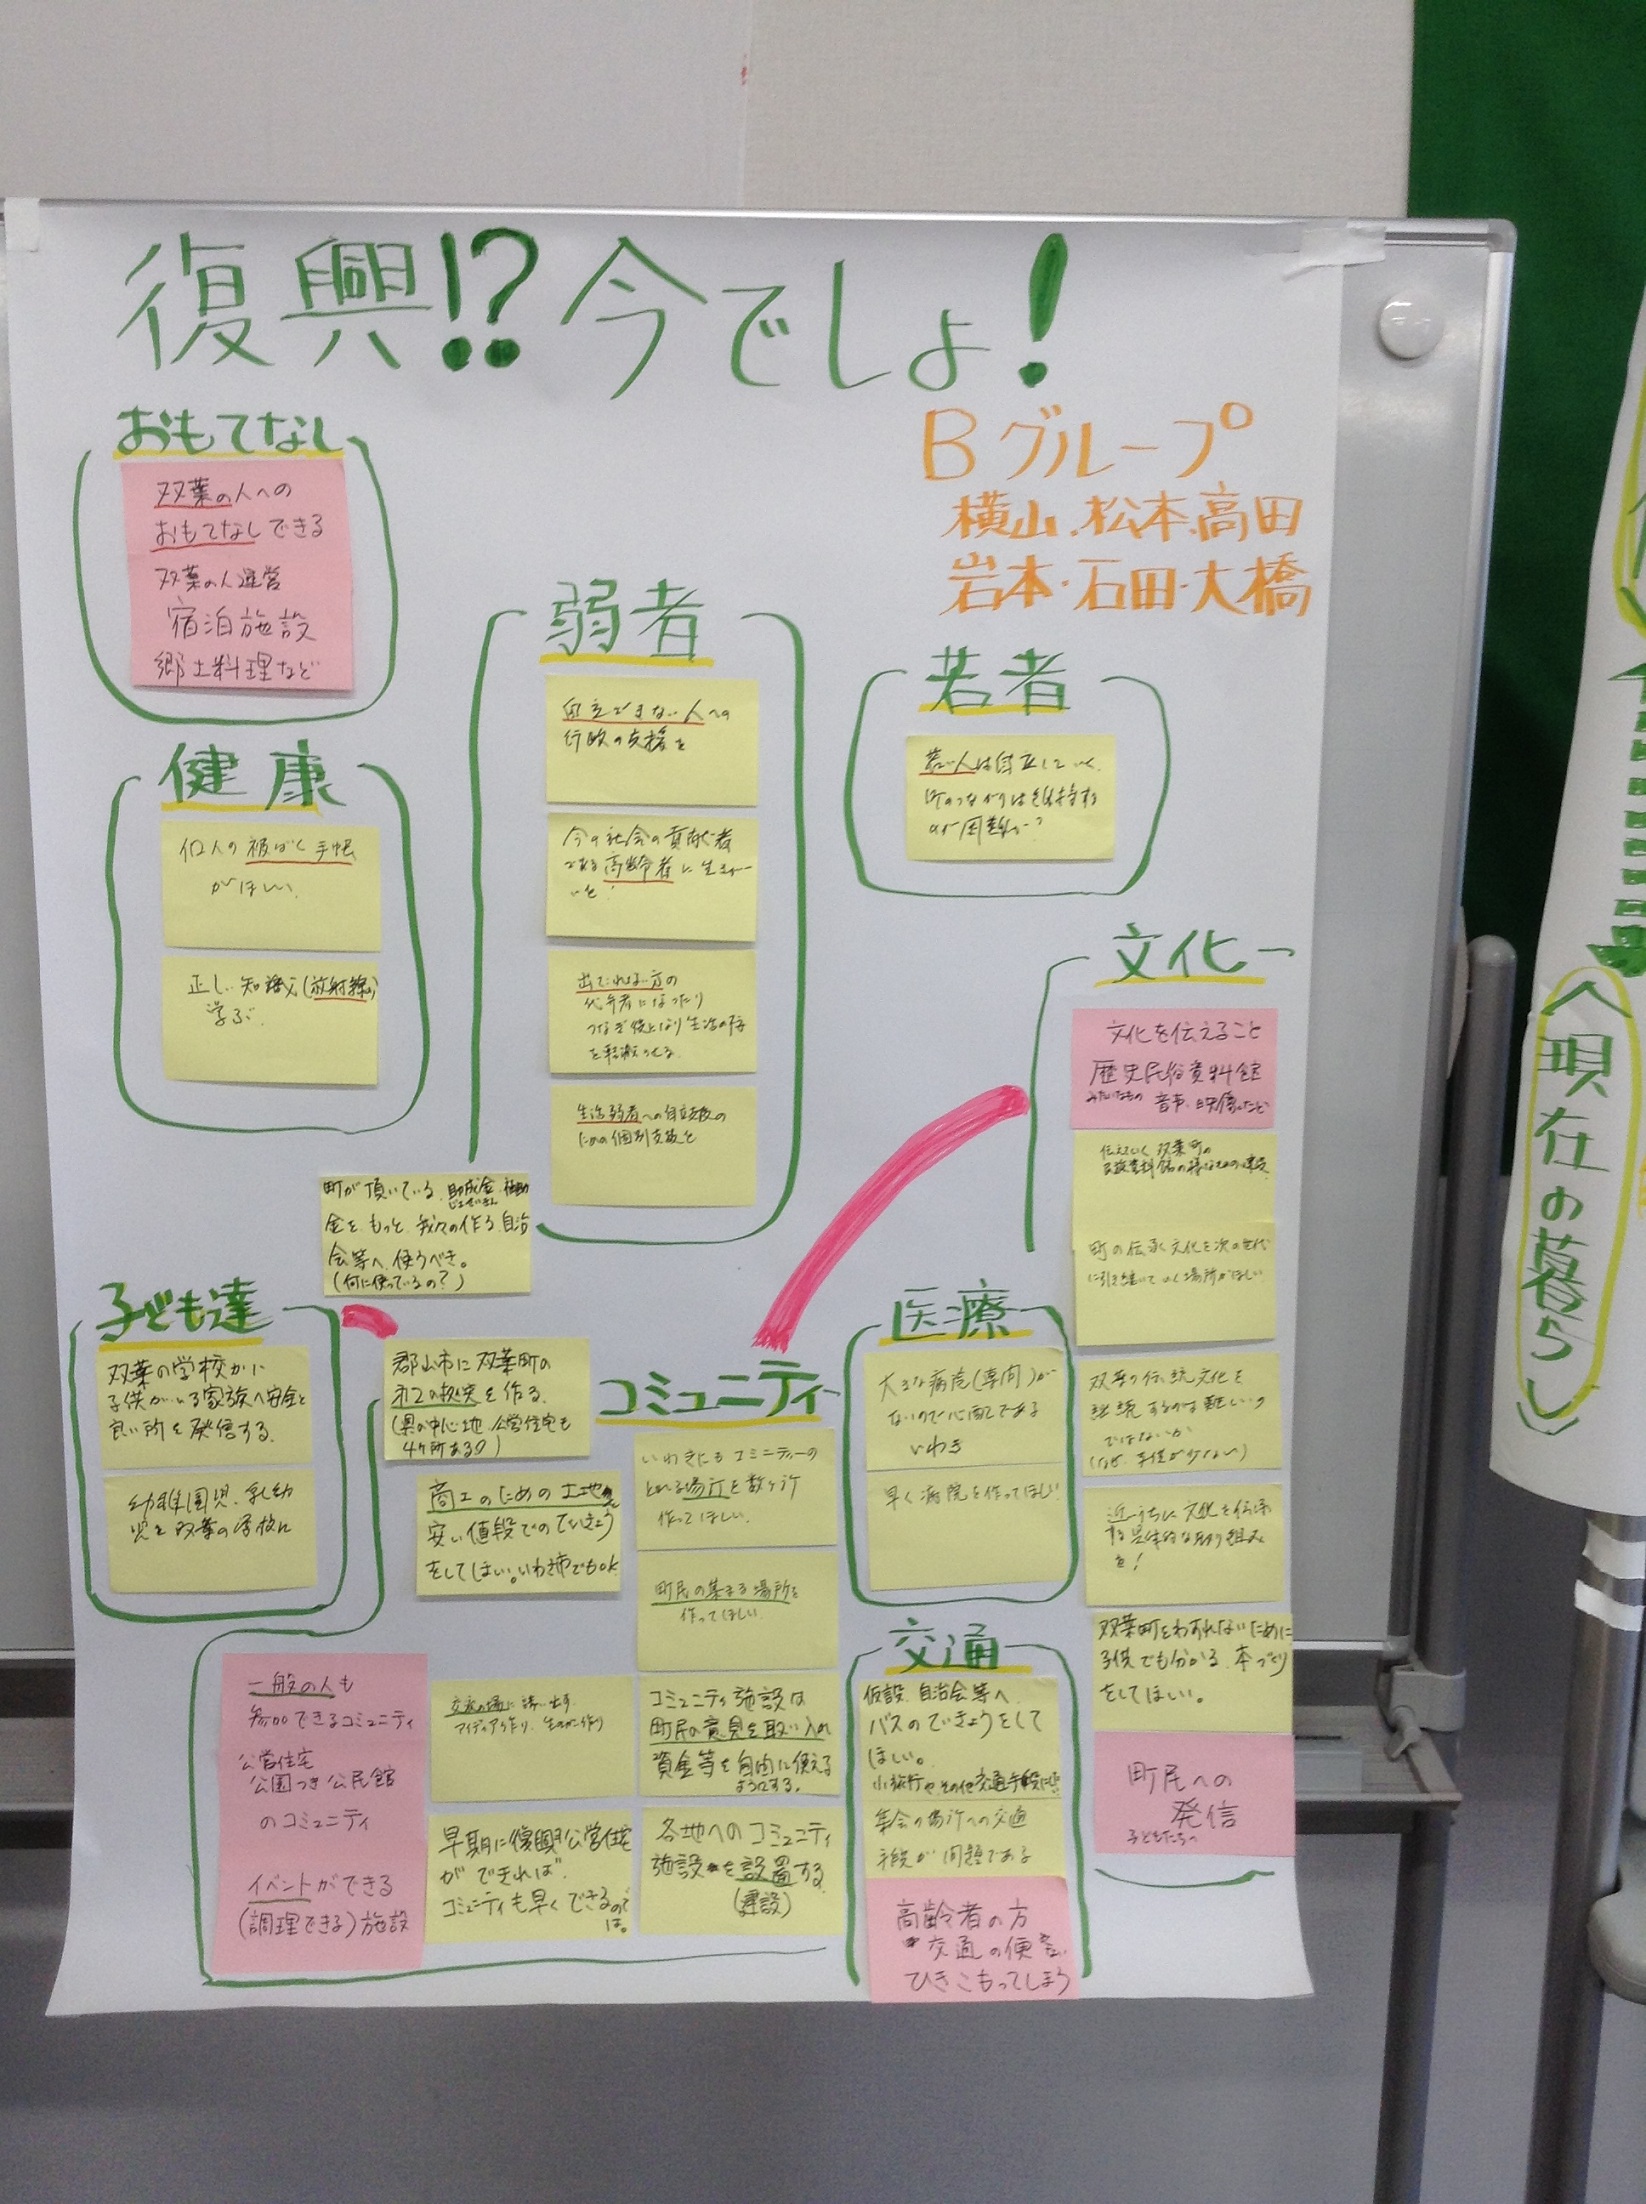 復興!?今でしょ!
Bグループ
横山.松本.高田
岩本・石田・大橋
おもてなし
双葉の人への
おもてなしできる
双葉の人運営
宿泊施設
郷土料理など
健康
個人の被ばく手帳
がほしい
正しい知識(放射線の)
学ぶ.
弱者
自立できない人への
行政の支援を
今の社会の貢献者
である高齢者に生きが
いを!
代弁者になったり
つなぎ役となり生活の
生活弱者への自立支援の
ための個別支援を
若者
若い人は自立していく.
町のつながりは維持する
のが困難か?
文化
文化を伝えること
歴史民俗資料館
みたいなもの 音声、映像など
伝えていく双葉町の
町の伝承文化を次の世代
に引き継いていく場所がほしい
双葉の伝統文化を
継続するのは難しいの
ではないか
近いうちに文化を伝承
する具体的な取り組み
を!
双葉町をわすれないために
子供でも分かる.本づくり
をしてほしい。
町民への
発信
子どもたちへ
町が頂いている.助成金.補助
じょせいきん
金を.もっと.我々の作る.自治
会等へ.使うべき。
(何に使っているの?)
子ども達
双葉の学校から
子供がいる家族へ安全と
良い所を発信する.
幼稚園児.乳幼
児を双葉の学校に
郡山市に双葉町の
第2の拠点を作る.
(県の中心地.公営住宅も
4ヶ所あるの)
商工のための土地を
安い値段でのていきょう
をしてほしい。いわき市でもok
コミュニティ
いわきにもコミニティーの
とれる場所を数ヶ所
作ってほしい.
町民の集まる場所を
作ってほしい
コミュニティ施設は
町民の意見を取り入れ
資金等を自由に使える
ようにする.
各地へのコミュニティ
施設を設置する.
(建設)
交流の場に誘い出す.
アイディア作り.生きがい作り
早期に復興公営住宅
ができれば
コミュニティも早くできるので
は。
一般の人も
参加できるコミュニティ
公営住宅
公園つき公民館
のコミュニティ
イベントができる
(調理できる)施設
医療
大きな病院(専門)が
ないので心配である
いわき
早く病院を作ってほしい
交通
仮設.自治会等へ
バスのていきょうをして
ほしい。
小旅行や.その他交通手段に
集会の場所への交通
手段が問題である
高齢者の方
交通の便
ひきこもってしまう
現在の暮らし